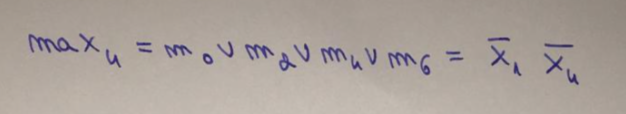 max₄ = m₀ ∨ m₂ ∨ m₄ ∨ m₆ = x̅₁ x̅₄